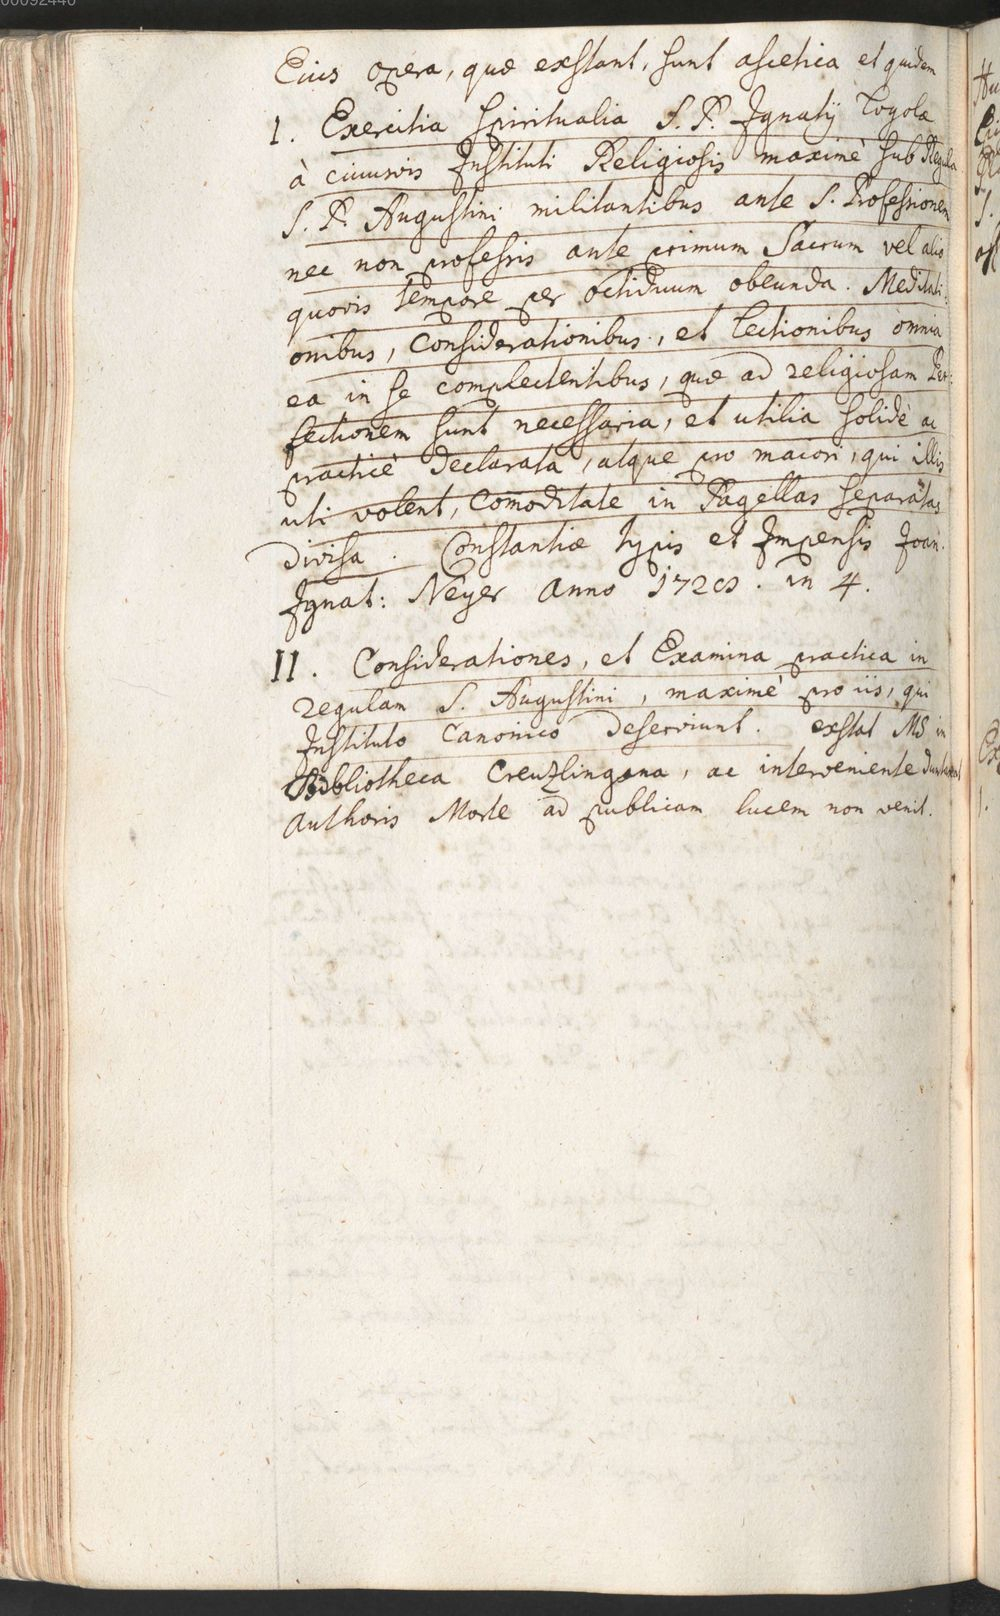 00092440
Eius opera, quæ exstant, sunt ascetica et quidem
I. Exercitia Spiritualia S. P. Ignatij Loyola
à cuiusvis Instituti Religiosis maximè sub Regula
S. P. Augustini militantibus ante S. Professionem
nec non professis ante primum Sacrum vel alio
quovis tempore per octiduum obeunda. Meditati:
onibus, Considerationibus, et Lectionibus omnia
ea in se complectentibus, quæ ad religiosam Per:
fectionem sunt necessaria, et utilia solidè ac
practicè declarata, atque pro maiori, qui illis
uti volent, Com̄oditate in Pagellas separatas
divisa. Constantiæ typis et Impensis Joan:
Ignat: Neyer Anno in 4.
II. Considerationes, et Examina practica in
regulam S. Augustini, maximè pro iis, qui
Instituto Canonico deserviunt. exstat MS in
Bibliotheca Creuzlingana, ac interveniente
Authoris Morte ad publicam lucem non venit.